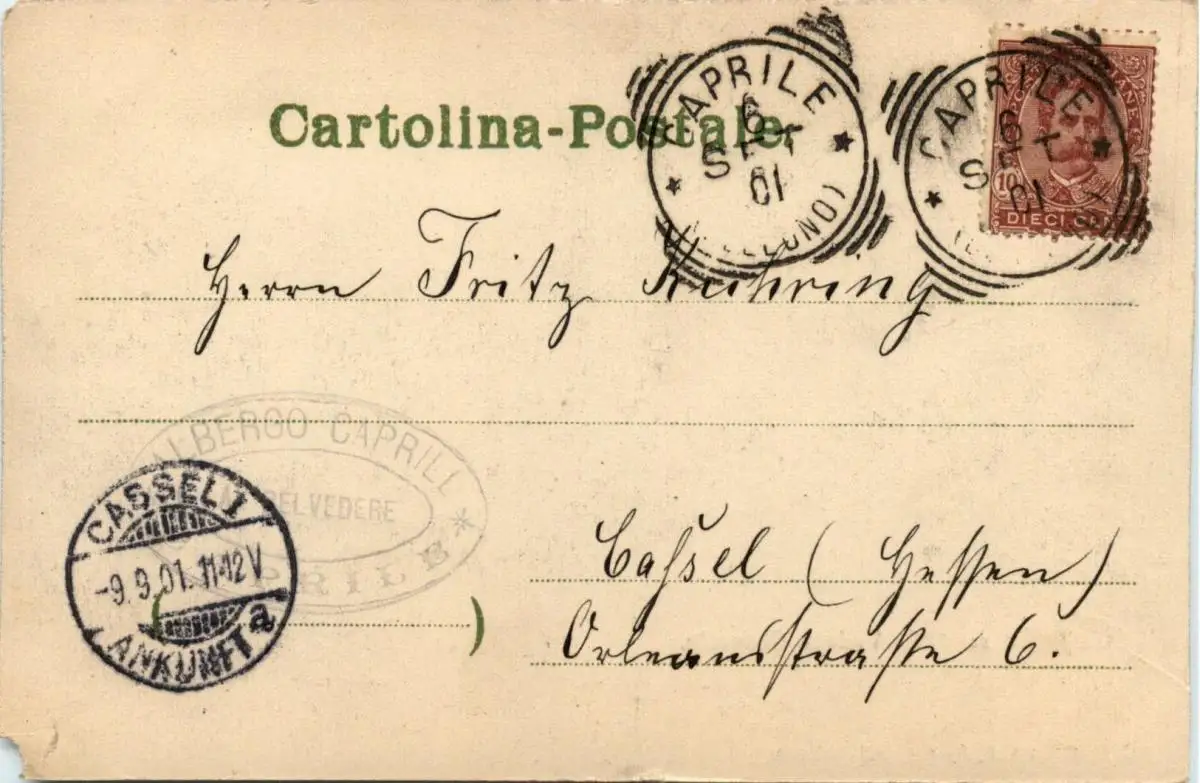 Cartolina-Postale
CAPRILE
6
SET
01
(BELLUNO)
CAPRILE
6
SET
01
10
DIECI
Herrn Fritz Kuhring
ALBERGO CAPRILE
BELVEDERE
CAPRILE
CASSEL 1
-9.9.01. 11-12V
ANKUNFT a
Cassel (Hessen)
( )
Orleansstrasse 6.